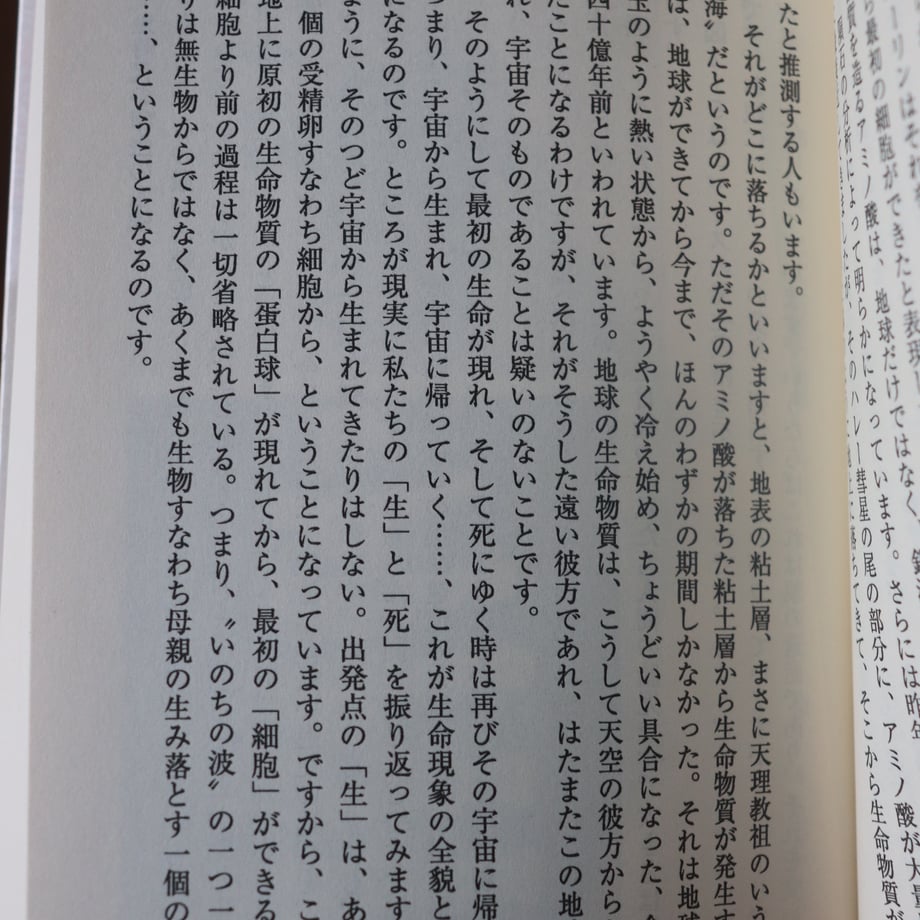 ーリンはそれ
ら最初の細胞ができたと表現
質を造るアミノ酸は、地球だけではなく、
の分析によって明らかになっています。さらには昨年
ましたが、そのハレー彗星の尾の部分に、アミノ酸が大量
地上に落ちてきて、そこから生命物質が
たと推測する人もいます。
それがどこに落ちるかといいますと、地表の粘土層、まさに天理教祖のいう
海〟だというのです。ただそのアミノ酸が落ちた粘土層から生命物質が発生す
は、地球ができてから今まで、ほんのわずかの期間しかなかった。それは地球
玉のように熱い状態から、ようやく冷え始め、ちょうどいい具合になった、
四十億年前といわれています。地球の生命物質は、こうして天空の彼方から
たことになるわけですが、それがそうした遠い彼方であれ、はたまたこの地
れ、宇宙そのものであることは疑いのないことです。
そのようにして最初の生命が現れ、そして死にゆく時は再びその宇宙に帰
つまり、宇宙から生まれ、宇宙に帰っていく……、これが生命現象の全貌と
になるのです。ところが現実に私たちの「生」と「死」を振り返ってみます
ように、そのつど宇宙から生まれてきたりはしない。出発点の「生」は、あ
個の受精卵すなわち細胞から、ということになっています。ですから、こ
地上に原初の生命物質の「蛋白球」が現れてから、最初の「細胞」ができる
細胞より前の過程は一切省略されている。つまり、〝いのちの波〟の一つ一
りは無生物からではなく、あくまでも生物すなわち母親の生み落とす一個の
……、ということになるのです。